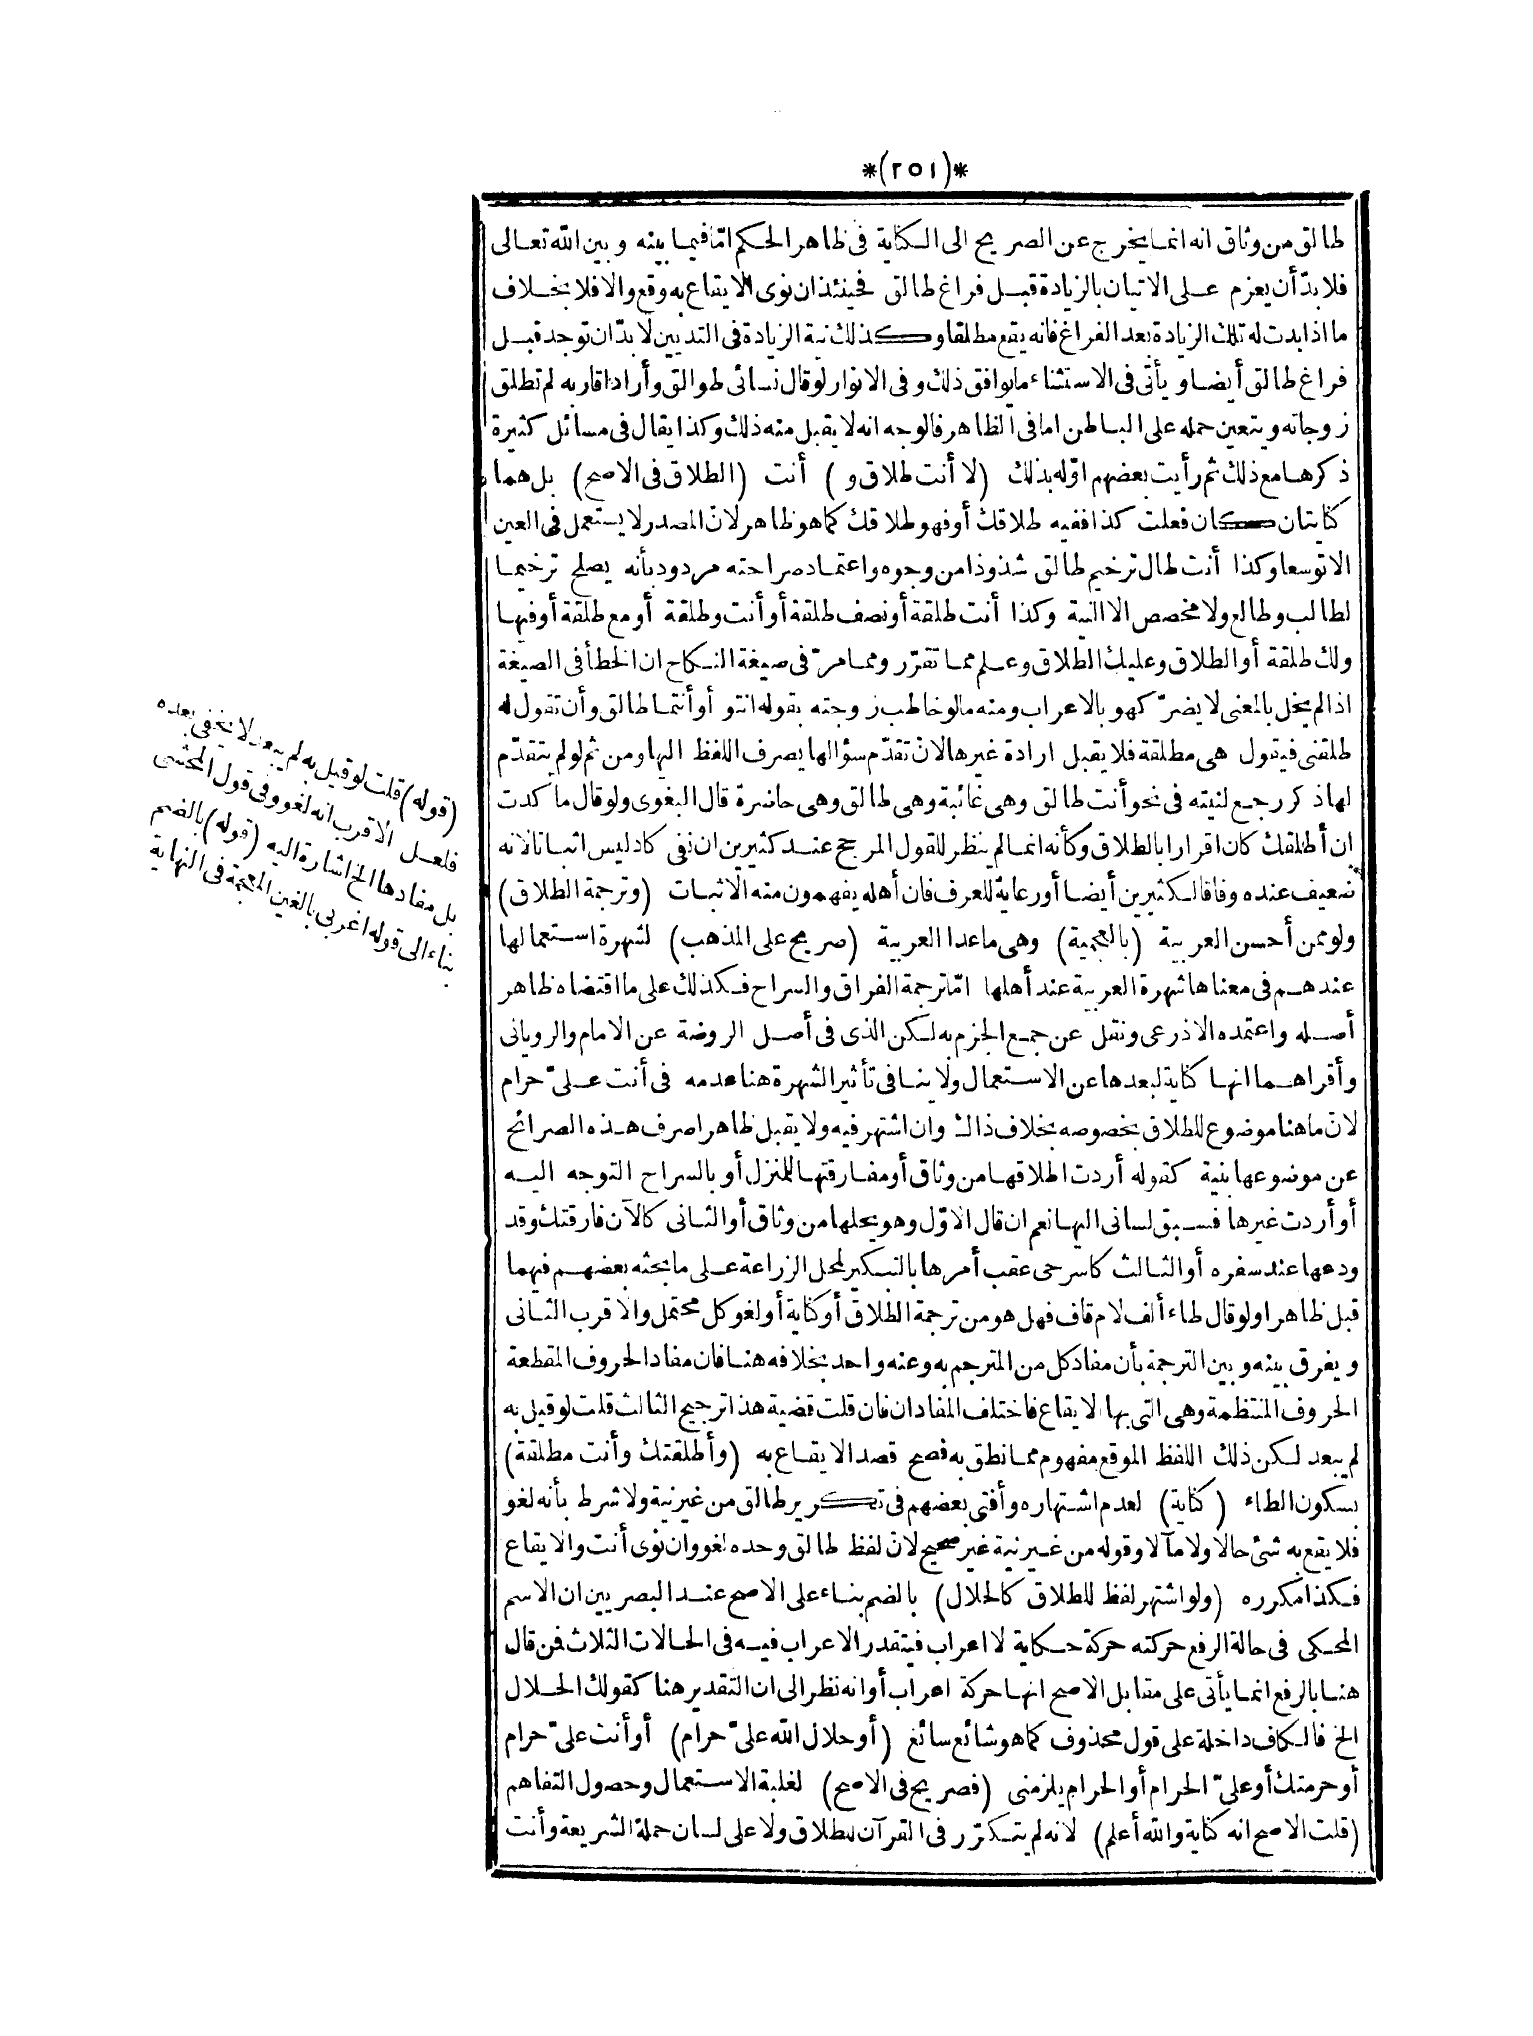 *(٢٥١)*
طالق من وثاق انه انما يخرج عن الصريح الى الكناية فى ظاهر الحكم امّا فيما بينه وبين الله تعالى
فلا بدّ أن يعزم على الاتيان بالزيادة قبل فراغ طالق فحينئذ ان نوى الايقاع به وقع والا فلا بخلاف
ما اذا بدت له تلك الزيادة بعد الفراغ فانه يقع مطلقا وكذلك نية الزيادة فى التديين لا بدّ ان توجد قبل
فراغ طالق أيضا ويأتى فى الاستثناء ما يوافق ذلك وفى الانوار لو قال نسائى طوالق وأراد اقاربه لم تطلق
زوجاته ويتعين حمله على الباطن اما فى الظاهر فالوجه انه لا يقبل منه ذلك وكذا يقال فى مسائل كثيرة
ذكرها مع ذلك ثم رأيت بعضهم اوّله بذلك (لا أنت طلاق و) أنت (الطلاق فى الاصح) بل هما
كنايتان كان فعلت كذا ففيه طلاقك أو فهو طلاقك كما هو ظاهر لانّ المصدر لا يستعمل فى العين
الا توسعا وكذا أنت طال ترخيم طالق شذوذا من وجوه واعتماد صراحته مردود بأنه يصلح ترخيما
لطالب وطالع ولا مخصص الا النية وكذا أنت طلقة أو نصف طلقة أو أنت وطلقة أو مع طلقة أو فيها
ولك طلقة أو الطلاق وعليك الطلاق وعلم مما تقرّر ومما مرّ فى صيغة النكاح ان الخطأ فى الصيغة
اذا لم يخل بالمعنى لا يضرّ كهو بالاعراب ومنه ما لو خاطب زوجته بقوله انتو أو أنتما طالق وأن تقول له
طلقنى فيقول هى مطلقة فلا يقبل ارادة غيرها لانّ تقدّم سؤالها يصرف اللفظ اليها ومن ثم لو لم يتقدّم
لها ذكر رجع لنيته فى نحو أنت طالق وهى غائبة وهى طالق وهى حاضرة قال البغوى ولو قال ما كدت
ان أطلقك كان اقرارا بالطلاق وكأنه انما لم ينظر للقول المرجح عند كثيرين ان نفى كاد ليس اثباتا لانه
ضعيف عنده وفاقا لكثيرين أيضا أو رعاية للعرف فان أهله يفهمون منه الاثبات (وترجمة الطلاق)
ولو ممن أحسن العربية (بالعجمية) وهى ما عدا العربية (صريح على المذهب) لشهرة استعمالها
عندهم فى معناها شهرة العربية عند أهلها امّا ترجمة الفراق والسراح فكذلك على ما اقتضاه ظاهر
أصله واعتمده الاذرعى ونقل عن جمع الجزم به لكن الذى فى أصل الروضة عن الامام والرويانى
وأقراهما انها كناية لبعدها عن الاستعمال ولا ينافى تأثير الشهرة هنا عدمه فى أنت علىّ حرام
لانّ ما هنا موضوع للطلاق بخصوصه بخلاف ذاك وان اشتهر فيه ولا يقبل ظاهرا صرف هذه الصرائح
عن موضوعها بنية كقوله أردت اطلاقها من وثاق أو مفارقتها للمنزل أو بالسراح التوجه اليه
أو أردت غيرها فسبق لسانى اليها نعم ان قال الاوّل وهو يحلها من وثاق أو الثانى كالآن فارقتك وقد
ودعها عند سفره أو الثالث كاسرحى عقب أمرها بالتبكير لمحل الزراعة على ما بحثه بعضهم فيهما
قبل ظاهرا ولو قال طاء ألف لام قاف فهل هو من ترجمة الطلاق أو كناية أو لغو كل محتمل والاقرب الثانى
ويفرق بينه وبين الترجمة بأن مفاد كل من المترجم به وعنه واحد بخلافه هنا فان مفاد الحروف المقطعة
الحروف المنتظمة وهى التى بها الايقاع فاختلف المفادان فان قلت قضية هذا ترجيح الثالث قلت لو قيل به
لم يبعد لكن ذلك اللفظ الموقع مفهوم مما نطق به فصح قصد الايقاع به (وأطلقتك وأنت مطلقة)
بسكون الطاء (كناية) لعدم اشتهاره وأفتى بعضهم فى تكرير طالق من غير نية ولا شرط بأنه لغو
فلا يقع به شئ حالا ولا مآلا وقوله من غير نية غير صحيح لانّ لفظ طالق وحده لغو وان نوى أنت والايقاع
فكذا مكرره (ولو اشتهر لفظ للطلاق كالحلال) بالضم بناء على الاصح عند البصريين ان الاسم
المحكى فى حالة الرفع حركته حركة حكاية لا اعراب فيتقدر الاعراب فيه فى الحالات الثلاث فمن قال
هنا بالرفع انما يأتى على مقابل الاصح انها حركة اعراب أو انه نظر الى ان التقدير هنا كقولك الحلال
الخ فالكاف داخلة على قول محذوف كما هو شائع سائغ (أو حلال الله علىّ حرام) أو أنت علىّ حرام
أو حرمتك أو علىّ الحرام أو الحرام يلزمنى (فصريح فى الاصح) لغلبة الاستعمال وحصول التفاهم
(قلت الاصح انه كناية والله أعلم) لانه لم يتكرّر فى القرآن للطلاق ولا على لسان حملة الشريعة وأنت
(قوله) قلت لو قيل به لم يبعد لا يخفى بعده
فلعل الاقرب انه لغو وفى قول المحشى
بل مفادها الخ اشارة اليه (قوله) بالضم
بناء الى قوله اعربى بالغين المعجمة فى النهاية